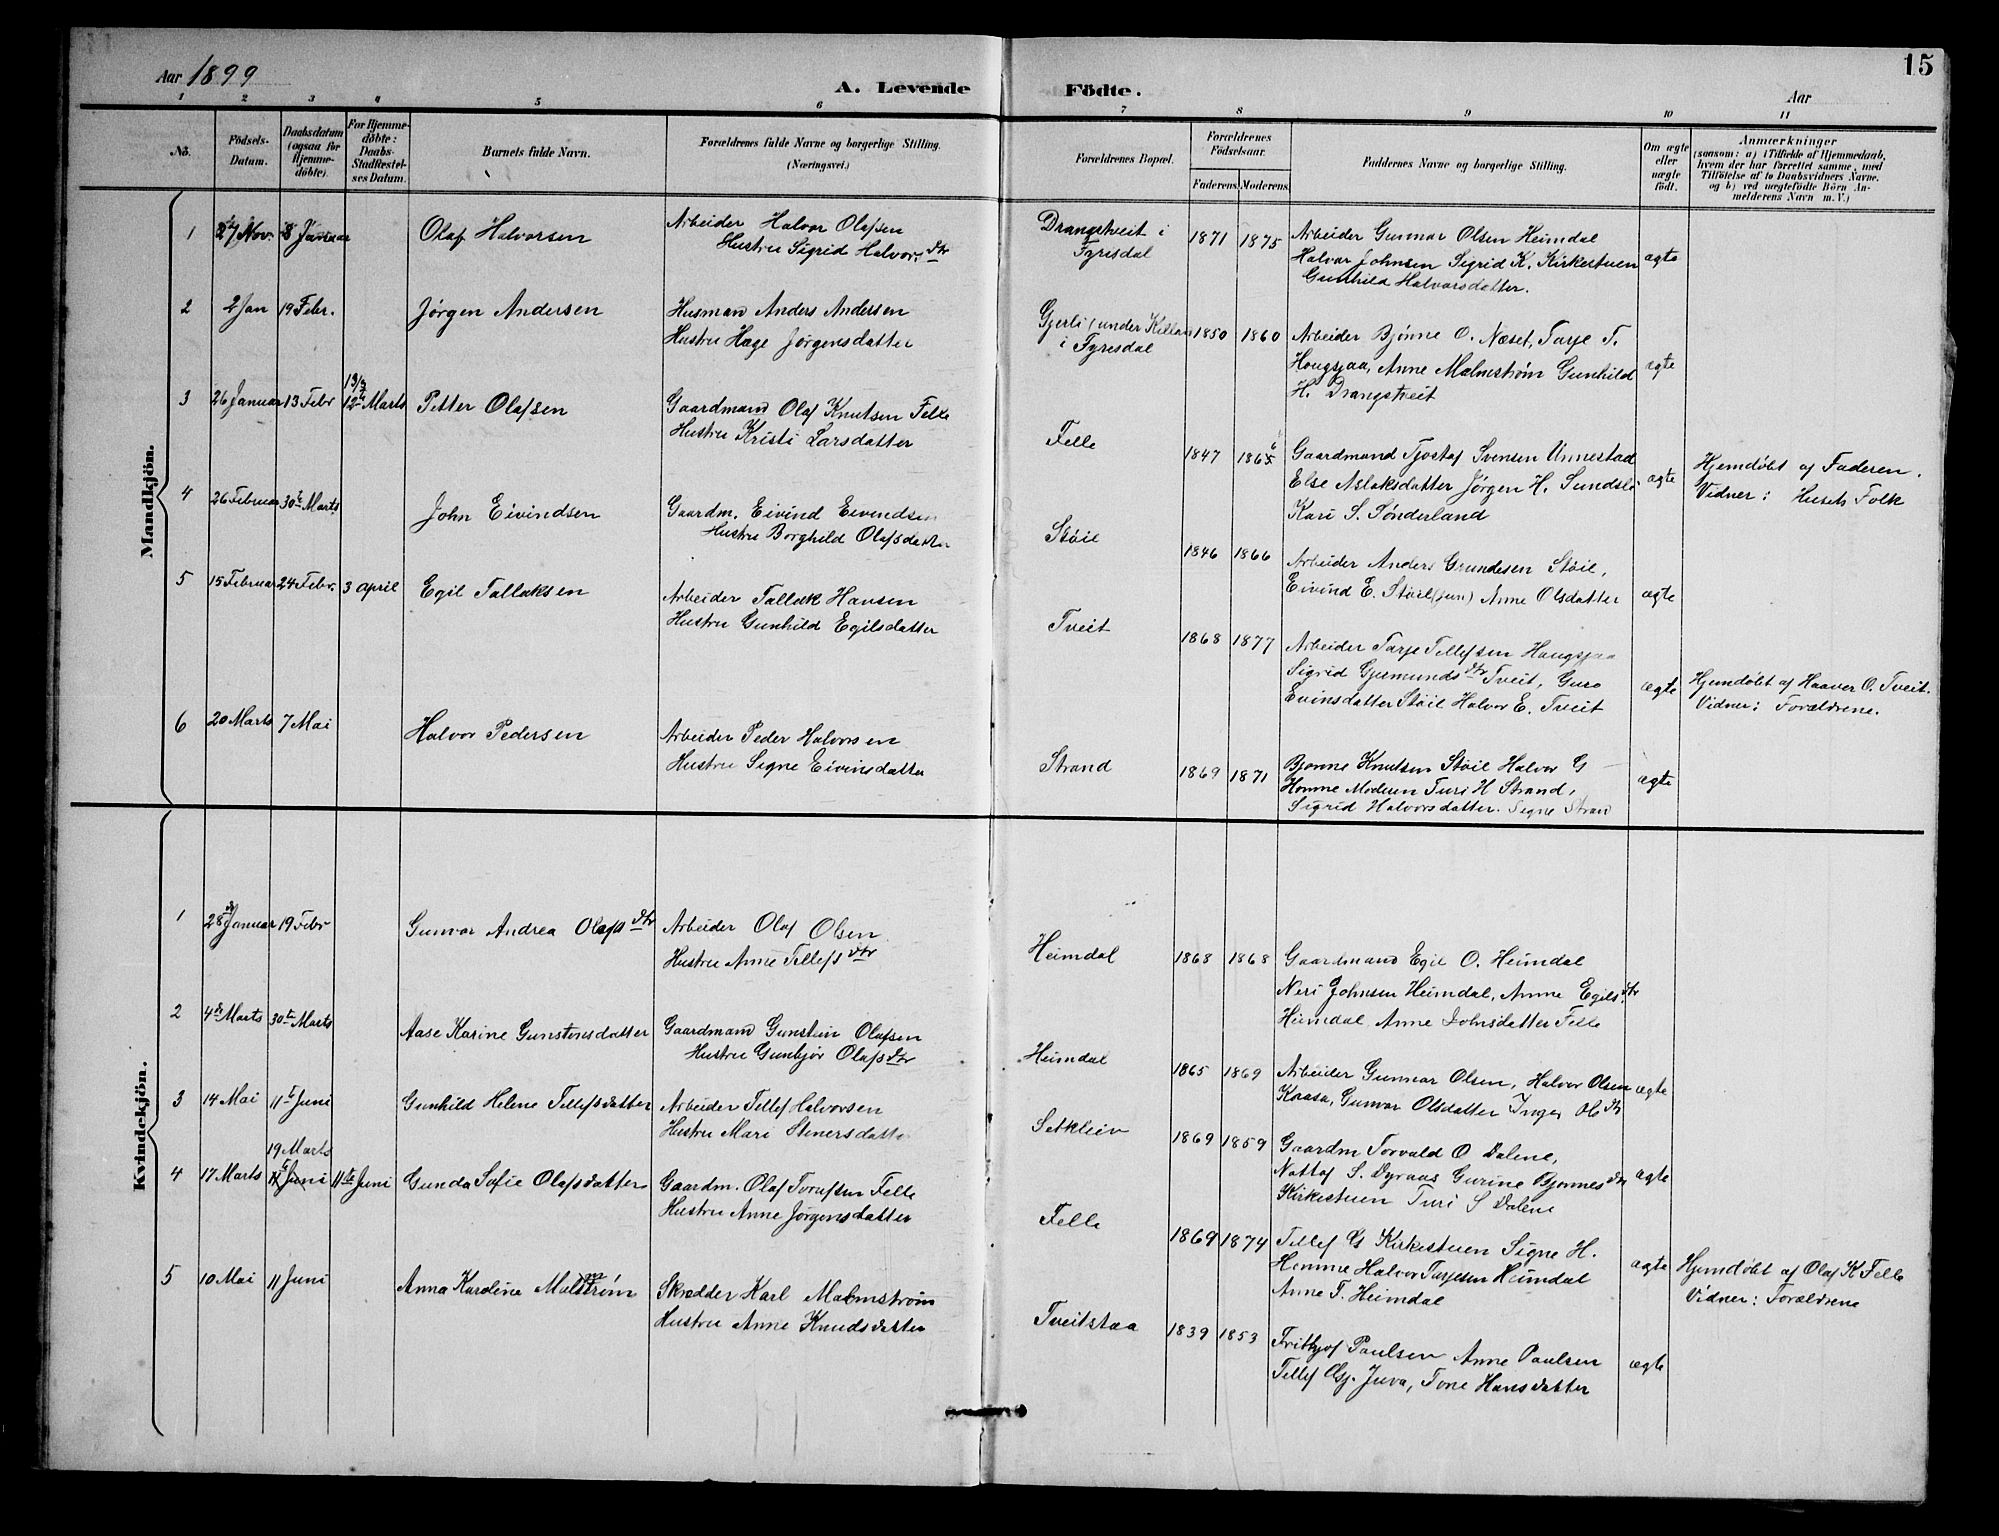 15
Aar 1899
A. Levende Födte.
Aar
1 2 3 4 5 6 7 8 9 10 11
No. Födsels-Datum. Daabsdatum (ogsaa for Hjemme-döbte). For Hjemme-döbte: Daabs-Stadfæstel-ses Datum. Barnets fulde Navn. Forældrenes fulde Navne og borgerlige Stilling. (Næringsvei.) Forældrenes Bopæl. Forældrenes Födselsaar. Faderens. Moderens. Faddernes Navne og borgerlige Stilling. Om ægte eller uægte födt. Anmærkninger (saasom: a) i Tilfælde af Hjemmedaab, hvem der har forrettet samme, med Tilföielse af to Daabsvidners Navne, og b) ved uægtefödte Börn An-melderens Navn m. V.)
Mandkjön.
1 Nov. 8 Januar Olaf Halvorsen Arbeider Halvor Olafsen
Hustru Sigrid Halvorsdtr
Drangstveit i Fyrisdal 1871 1875 Arbeider Gunnar Olsen Heimdal
Halvor Johnsen Sigrid K. Kirkestuen
Gunhild Halvorsdatter.
ægte
2 2 Jan 19 Febr. Jørgen Andersen Husmand Anders Andersen
Hustru Hæge Jørgensdatter
Gjerli (under Killan
i Fyrisdal 1850 1860 Arbeider Bjønne O. Næset, Tarje T.
Hougsjaa, Anne Malmstrøm Gunhild
H. Drangstveit
ægte
3 26 Januar 13 Febr 12te Marts Petter Olafsen Gaardmand Olaf Knutsen Felle
Hustru Kristi Larsdatter
Felle 1847 Gaardmand Tjostaf Svensen Unnestad
Else Aslaksdatter Jørgen H. Sundsli
Kari S. Sønderland
ægte Hjemdøbt af Faderen.
Vidner: Husets Folk
4 26 Februar 30te Marts John Eivindsen Gaardm. Eivind Eivendsen
Hustru Borghild Olafsdatter
Støil 1846 1866 Arbeider Anders Grundesen Støil,
Eivind E. Støil (jun) Anne Olsdatter ægte
5 15 Februar 24 Febr. 3 april Egil Tallaksen Arbeider Tallak Hansen
Hustru Gunhild Egilsdatter
Tveit 1868 1877 Arbeider Tarje Tellefsen Hougsjaa
Sigrid Gjermundsdtr Tveit, Guro
Evinsdatter Støil Halvor E. Tveit
ægte Hjemdøbt af Haaver O. Tveit.
Vidner: Forældrene.
6 20 Marts 7 Mai Halvor Pedersen Arbeider Peder Halvorsen
Hustru Signe Eivinsdatter
Strand 1869 1871 Bjønne Knutsen Støil Halvor G
Homme Moderen Turi H Strand,
Sigrid Halvorsdatter. Signe Stran
ægte
Kvindekjön.
1 28de Januar 19 Febr Gunvor Andrea Olafsdtr Arbeider Olaf Olsen
Hustru Anne Tellefsdtr
Heimdal 1868 1868 Gaardmand Egil O. Heimdal
Neri Johnsen Heimdal, Anne Egilsdtr
Heimdal Anne Johnsdatter Felle
2 4de Marts 30te Marts Aase Karine Gunstensdatter Gaardmand Gunstein Olafsen
Hustru Gunbjør Olafsdtr
Heimdal 1865 1869 Arbeider Gunnar Olsen, Halvor Olsen
Kaasa, Gunvor Olsdatter Inger Olsdtr
ægte
3 14 Mai 11te Juni Gunhild Helene Tellefsdatter Arbeider Tellef Halvorsen
Hustru Mari Stenersdatter
Setkleiv 1869 1859 Gaardm Torvald O Dalene,
Nottof S. Dyraas Gurine Bjønnesdtr
Kirkestuen Turi S Dalene
ægte
19 Marts
4 17 Marts 11te Juni 11te Juni Gunda Sofie Olafsdatter Gaardm. Olaf Torufsen Felle
Hustru Anne Jørgensdatter
Felle 1869 1874 Tellef G Kirkestuen Signe H.
Homme Halvor Tarjesen Heimdal
Anne T. Heimdal
ægte Hjemdøbt af Olaf K Felle
Vidner: Forældrene
5 10 Mai 11 Juni Anna Karoline Malmstrøm Skrædder Karl Malmstrøm
Hustru Anne Knudsdatter
Tveitstaa 1839 1853 Frithjof Paulsen Anne Paulsen
Tellef Gj. Juva, Tone Hansdatter
ægte